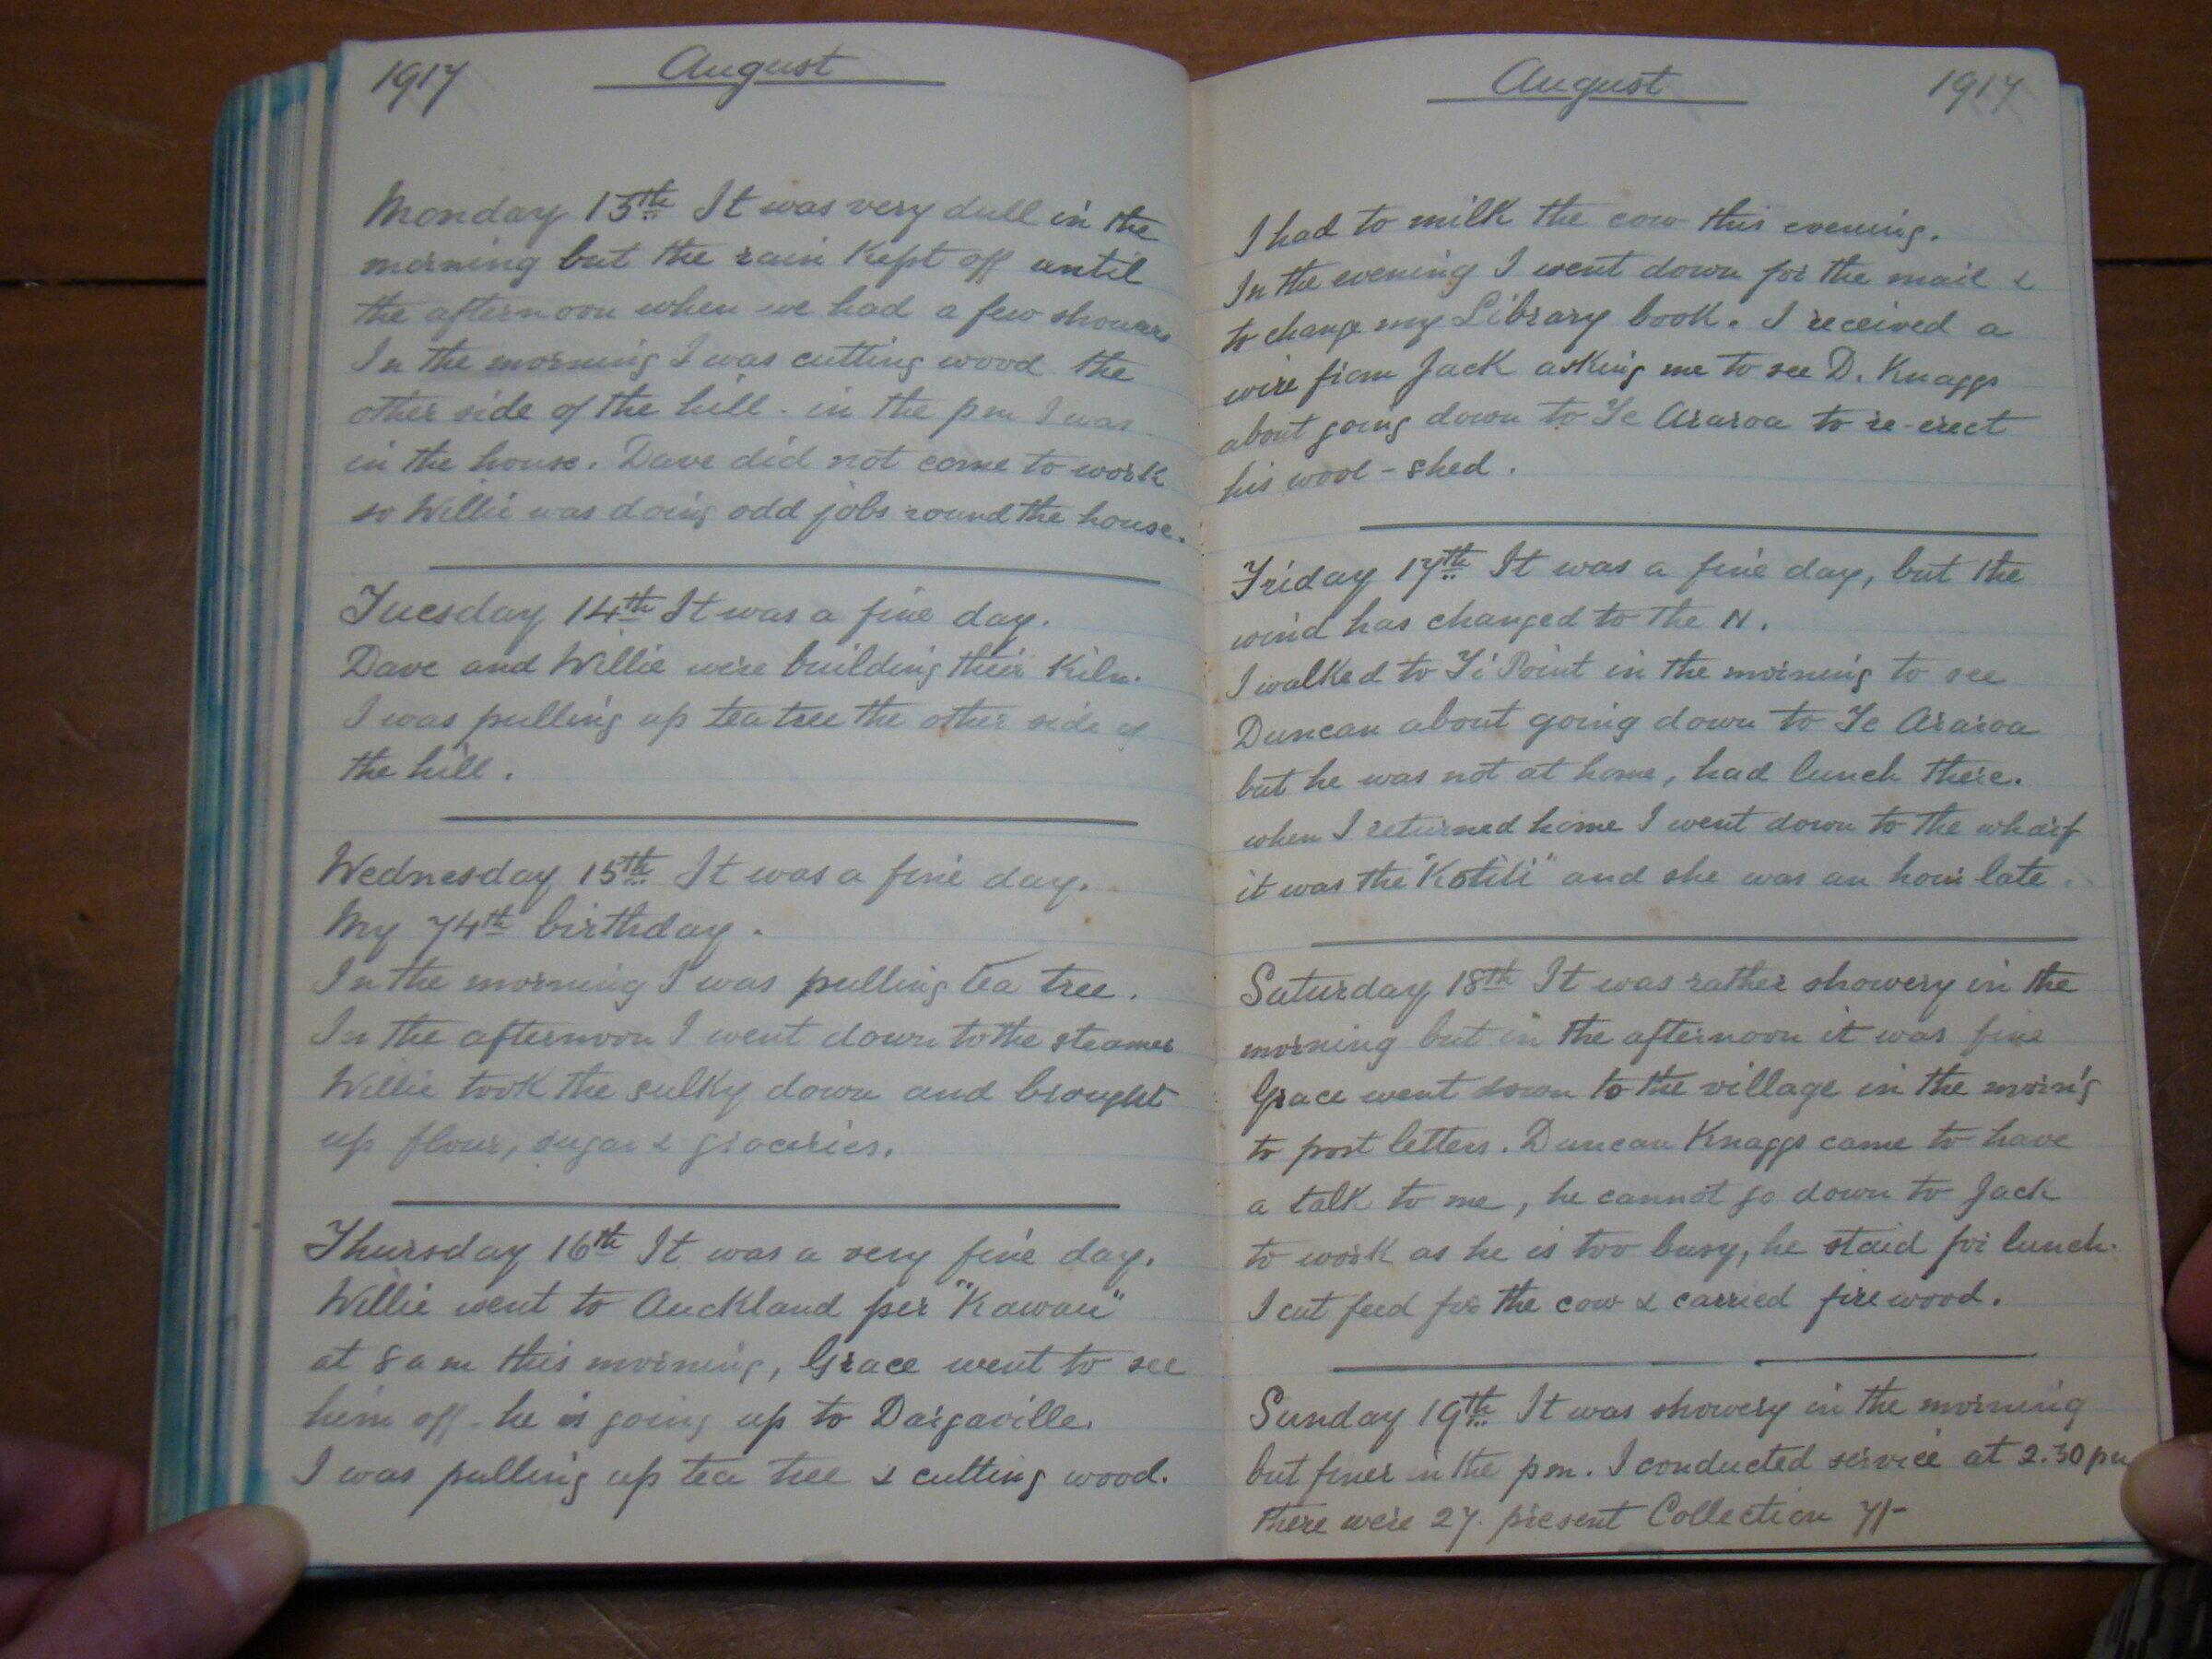 1917 August
Monday 13th It was very dull in the
morning but the rain kept off until
the afternoon when we had a few showers
In the morning I was cutting wood the
other side of the hill. in the pm I was
in the house. Dave did not come to work
so Willie was doing odd jobs round the house.
Tuesday 14th It was a fine day.
Dave and Willie were building their Kiln.
I was pulling up tea tree the other side of
the hill.
Wednesday 15th It was a fine day.
My 74th birthday.
In the morning I was pulling tea tree.
In the afternoon I went down to the steamer
Willie took the sulky down and brought
up flour, sugar & groceries.
Thursday 16th It was a very fine day.
Willie went to Auckland per "Kawau"
at 8 am this morning, Grace went to see
him off - he is going up to Dargaville.
I was pulling up tea tree & cutting wood.
August 1917
I had to milk the cow this evening.
In the evening I went down for the mail &
to change my Library book. I received a
wire from Jack asking me to see D. Knaggs
about going down to Te Araroa to re-erect
his wool-shed.
Friday 17th It was a fine day, but the
wind has changed to the N.
I walked to Ti Point in the morning to see
Duncan about going down to Te Araroa
but he was not at home, had lunch there.
when I returned home I went down to the wharf
it was the "Kotiti" and she was an hour late.
Saturday 18th It was rather showery in the
morning but in the afternoon it was fine
Grace went down to the village in the morn'g
to post letters. Duncan Knaggs came to have
a talk to me, he cannot go down to Jack
to work as he is too busy, he staid for lunch.
I cut feed for the cow & carried fire wood.
Sunday 19th It was showery in the morning
but finer in the pm. I conducted service at 2.30 pm
There were 27. present Collection 7/-